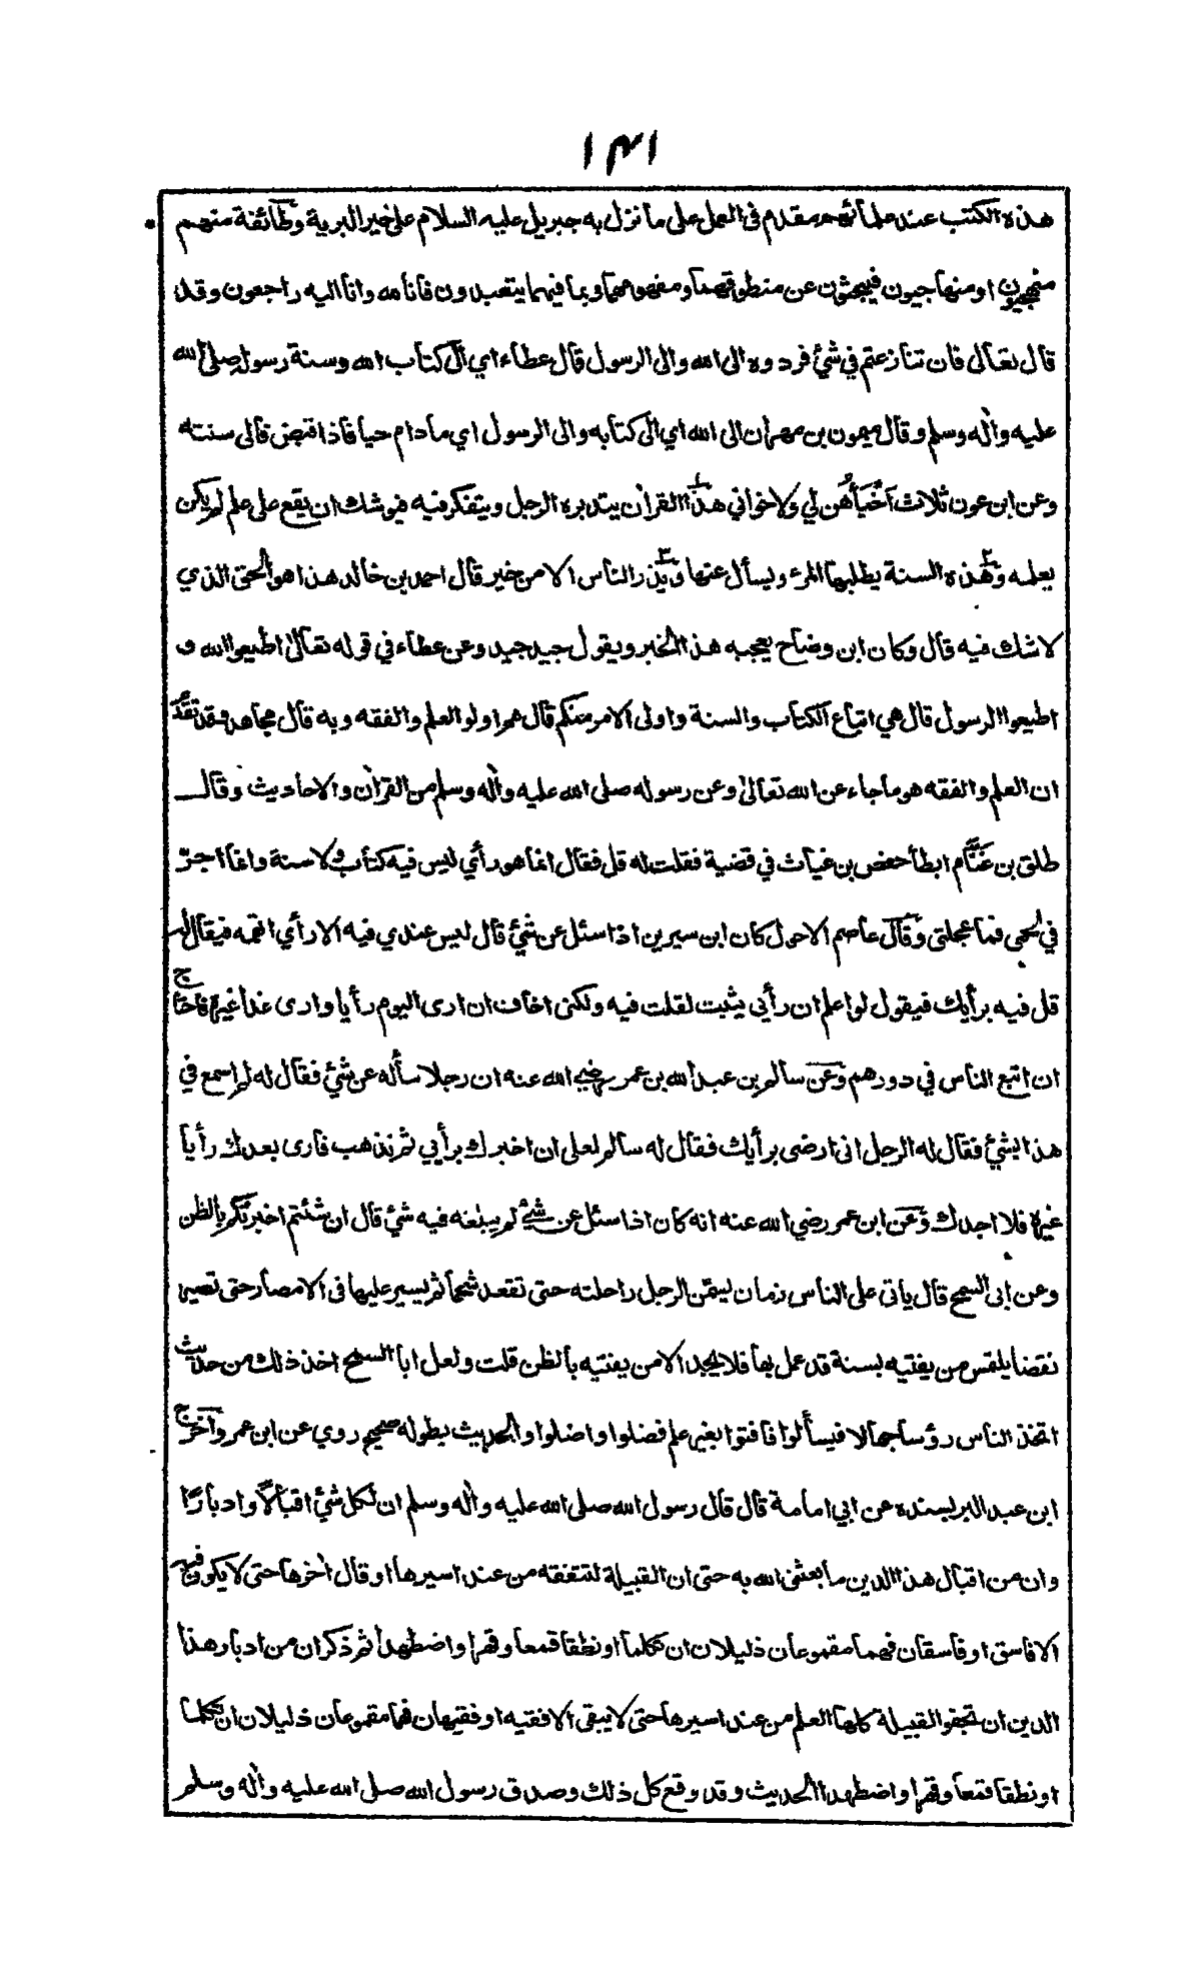 ١٣١
هذه الكتب عند علمائهم مقدم فى العمل على ما نزل به جبريل عليه السلام على خير البرية وطائفة منهم
منهجيون او منهاجيون فيبحثون عن منطوقهما ومفهومهما وبما فيهما يتعبدون فانا لله وانا اليه راجعون وقد
قال تعالى فان تنازعتم في شئ فردوه الى الله والى الرسول قال عطاء اي الى كتاب الله وسنة رسوله صلى الله
عليه واٰله وسلم وقال ميمون بن مهران الى الله اي الى كتابه والى الرسول اي ما دام حيا فاذا قبض فالى سنته
وعن ابن عون ثلاث اُحبّهن لي ولاخواني هذا القراٰن يتدبره الرجل ويتفكر فيه فيوشك ان يقع على علم لم يكن
يعلمه وهذه السنة يطلبها المرء ويسأل عنها ويذر الناس الا من خير قال احمد بن خالد هذا هو الحق الذي
لا شك فيه قال وكان ابن وضاح يعجبه هذا الخبر ويقول جيد جيد وعن عطاء في قوله تعالىٰ اطيعوا الله و
اطيعوا الرسول قال هي اتباع الكتاب والسنة واولى الامر منكم قال هم اولو العلم والفقه وبه قال مجاهد وقد تقدّم
ان العلم والفقه هو ما جاء عن الله تعالىٰ وعن رسوله صلى الله عليه واٰله وسلم من القراٰن والاحاديث وقال
طلق بن غنّام ابطأ حفص بن غياث في قضية فقلت له قل فقال انما هو رأي ليس فيه كتاب ولا سنة وانما اجزّ
في لحمي فما عجلتى وقال عاصم الاحول كان ابن سيرين اذا سئل عن شئ قال ليس عندي فيه الا رأي اتهمه فيقال له
قل فيه برأيك فيقول لو اعلم ان رأيي يثبت لقلت فيه ولكنى اخاف ان ارى اليوم رأيا وارى غدا غيره فاحتاج
ان اتبع الناس في دورهم وعن سالم بن عبد الله بن عمر رضي الله عنه ان رجلا سأله عن شئ فقال له لم اسمع في
هذا بشئ فقال له الرجل انى ارضى برأيك فقال له سالم لعلى ان اخبرك برأيي ثم تذهب فارى بعدك رأيا
غيره فلا اجدك وعن ابن عمر رضي الله عنه انه كان اذا سئل عن شئ لم يبلغه فيه شئ قال ان شئتم اخبرتكم بالظن
وعن ابى السمح قال ياتى على الناس زمان ليسمّن الرجل راحلته حتى تقعد شحما ثم يسير عليها فى الامصار حتى تصير
نقضا يلتمس من يفتيه بسنة قد عمل بها فلا يجد الا من يفتيه بالظن قلت ولعل ابا السمح اخذ ذلك من حديث
اتخذ الناس رؤسا جهالا فيسألوا فافتوا بغير علم فضلوا واضلوا والحديث بطوله صحيح روي عن ابن عمر واخرج
ابن عبد البر بسنده عن ابي امامة قال قال رسول الله صلى الله عليه واٰله وسلم ان لكل شئ اقبالًا وادبارًا
وان من اقبال هذا الدين ما بعثنى الله به حتى ان القبيلة لتتفقه من عند اسيرها او قال اٰخرها حتى لا يكون فيها
الا فاسق او فاسقان فهما مقموعان ذليلان ان تكلما او نطقا قمعا وقهرا واضطهدا ثم ذكر ان من ادبار هذا
الدين ان تجفو القبيلة كلها العلم من عند اسيرها حتى لا يبقى الا فقيه او فقيهان فهما مقموعان ذليلان ان تكلما
او نطقا قمعا وقهرا واضطهدا الحديث وقد وقع كل ذلك وصدق رسول الله صلى الله عليه واٰله وسلم